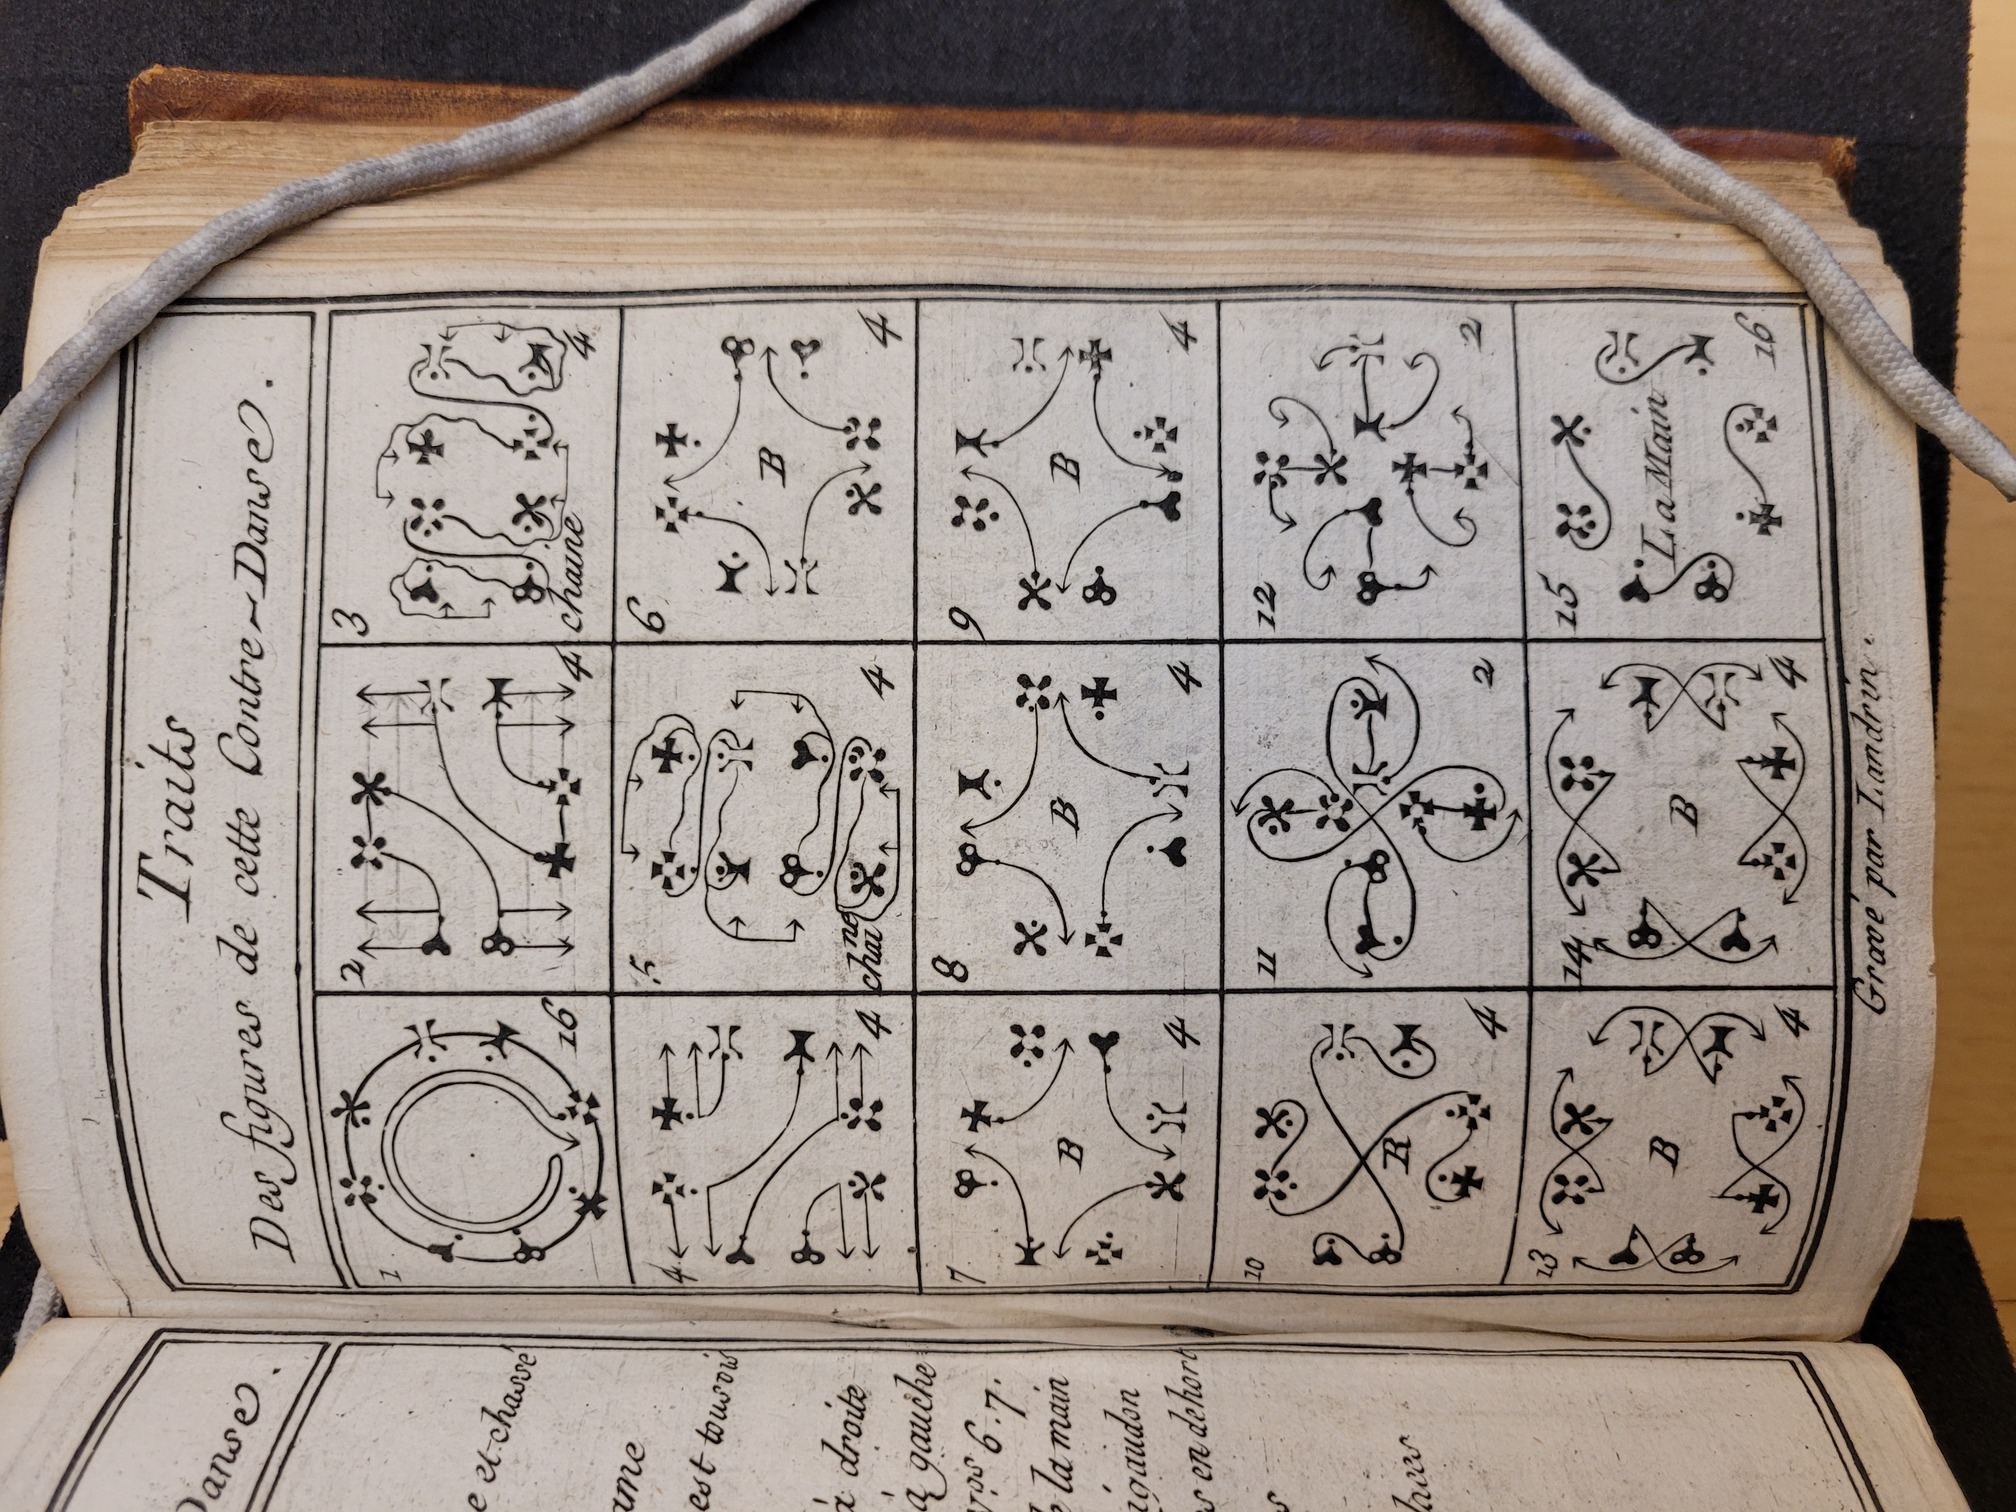 Traits
Des figures de cette Contre-Danse.
1
16
2
4
3
chaine
4
4
4
5
chai
ne
4
6
B
4
7
B
4
8
B
4
9
B
4
10
R
4
11
2
12
2
13
B
4
14
B
4
15
La Main
16
Gravé par Landrin.
Danse.
e et chassé
ame
est tousvis
à droite
à gauche
6.7.
la main
igaudon
s en dehort
s